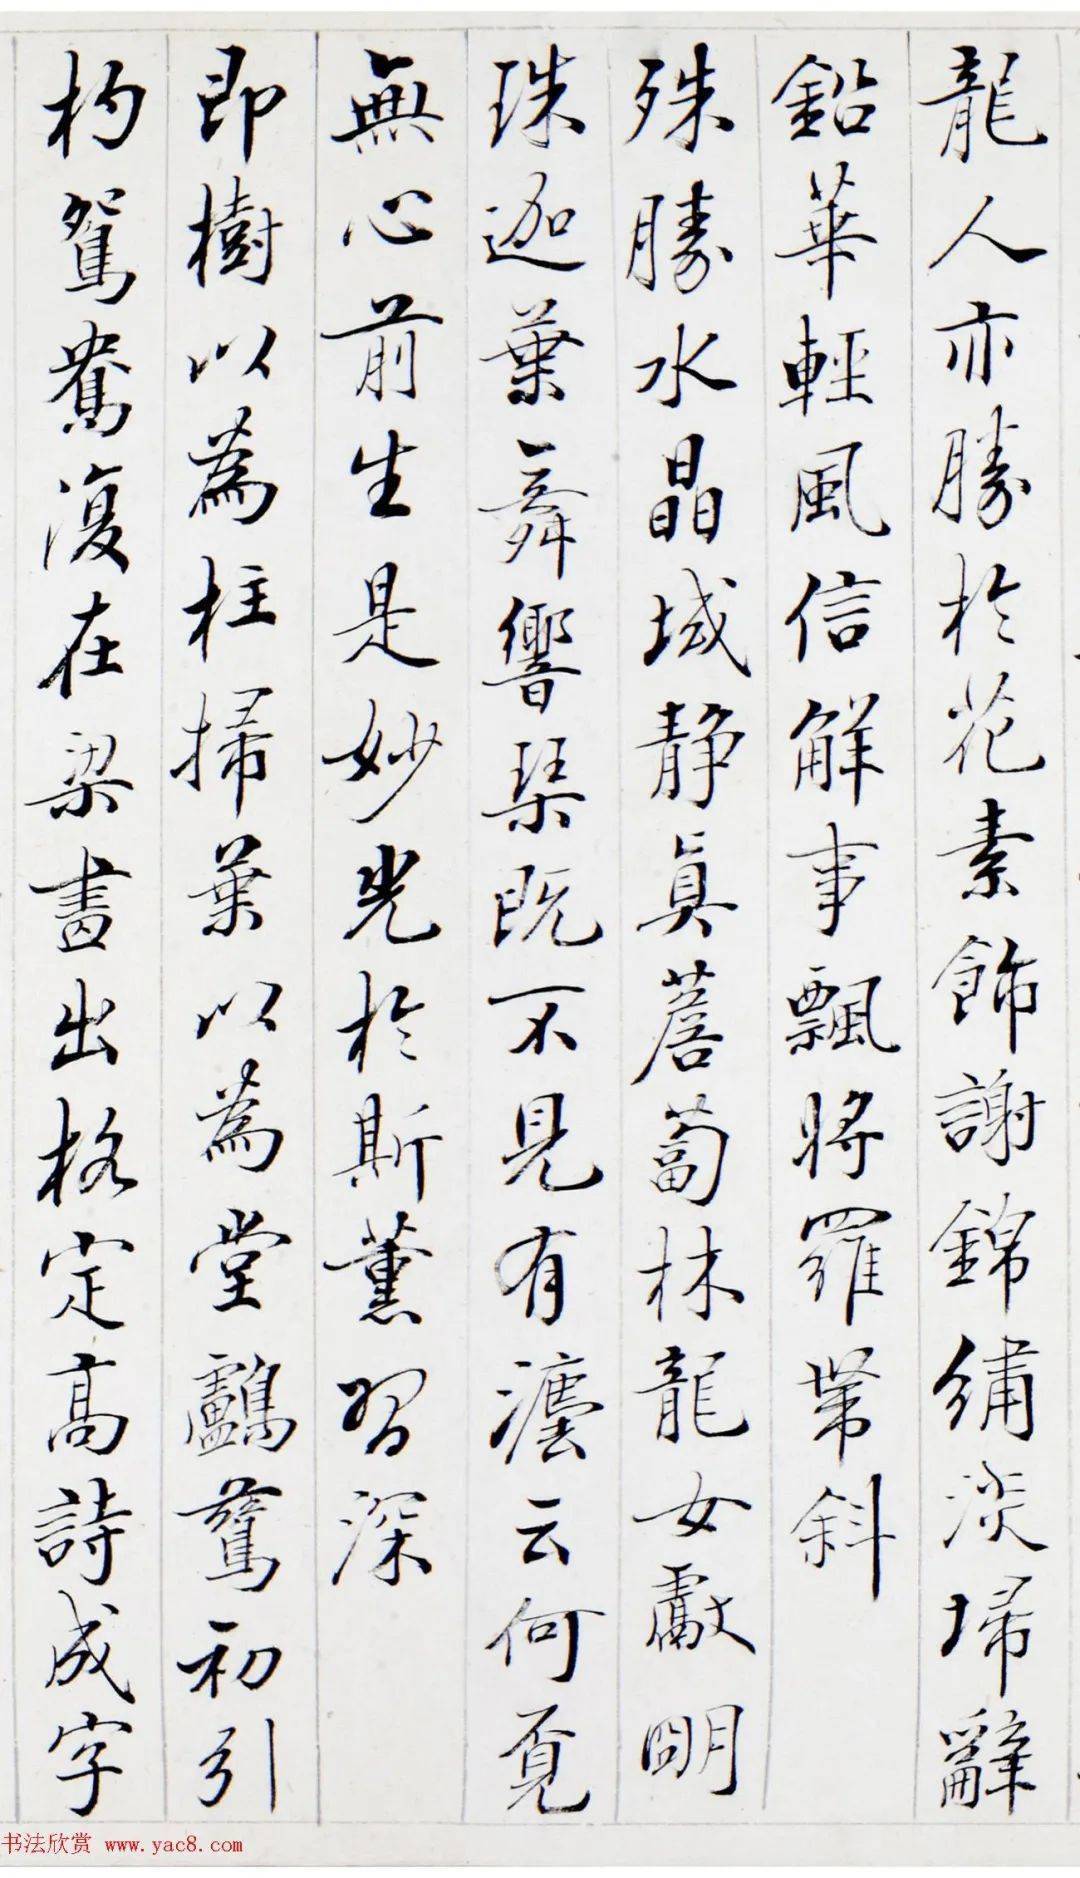 龍人亦勝於花素飾謝錦繡淡掃辭
鉛華輕風信解事飄將羅帶斜
殊勝水晶域靜真薝蔔林龍女獻明
珠迦葉舞響琴既不見有瀍云何覓
無心前生是妙光於斯薰習深
即樹以為柱掃葉以為堂鸕鶿初引
杓鴛鴦復在梁書出格定高詩成字
书法欣赏 www.yac8.com